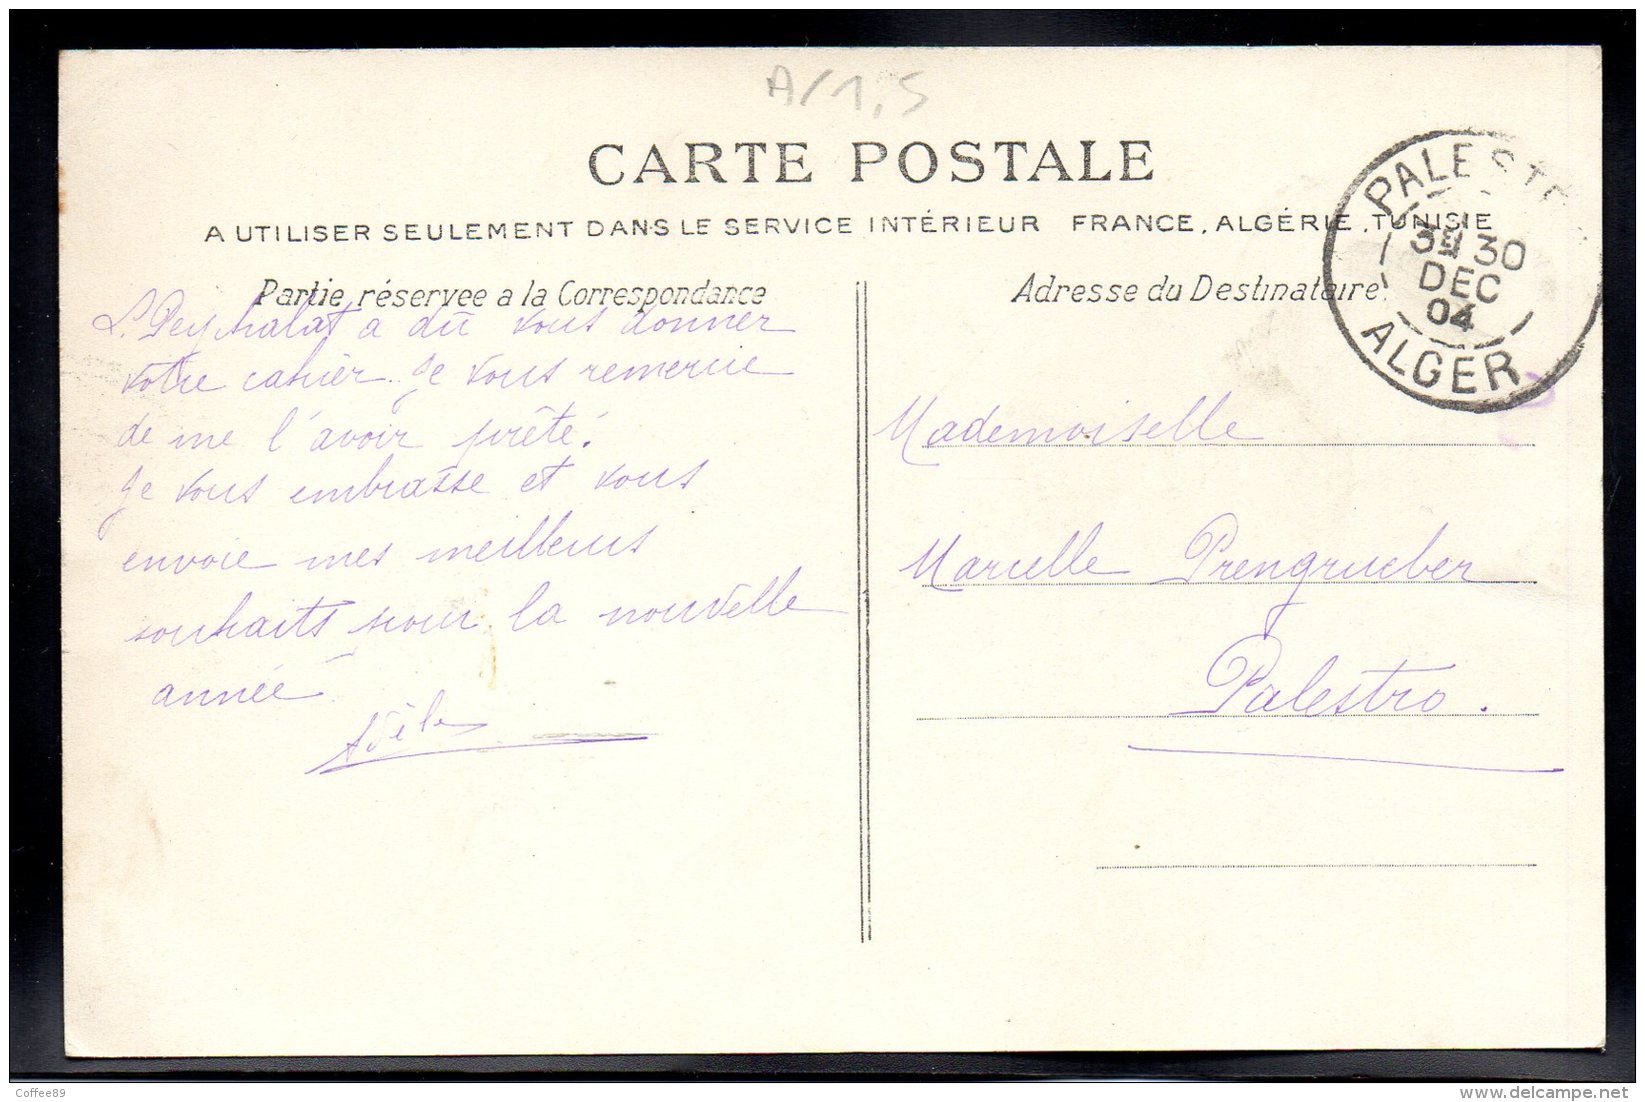 A/1,5
CARTE POSTALE
A UTILISER SEULEMENT DANS LE SERVICE INTÉRIEUR FRANCE, ALGÉRIE, TUNISIE
Partie réservée a la Correspondance
Adresse du Destinataire
PALEST
30
DEC
04
ALGER
L. Peychalat a dû vous donner
votre cahier. Je vous remercie
de me l'avoir prêté.
Je vous embrasse et vous
envoie mes meilleurs
souhaits pour la nouvelle
année
Adèle
Mademoiselle
Marcelle Prengrueber
Palestro.
Coffee89
delcampe.net